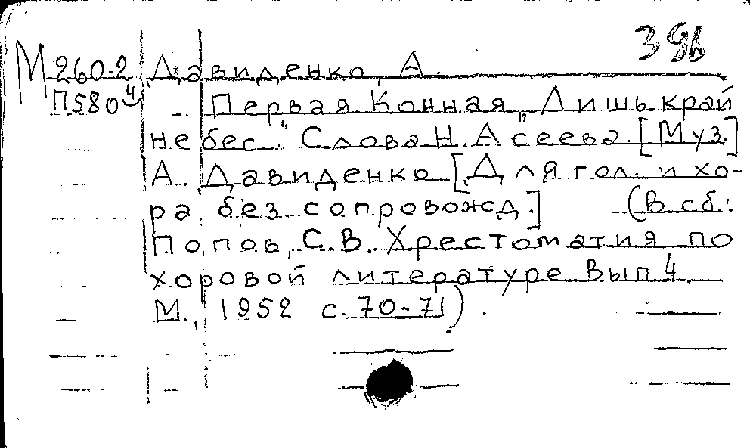 396
М 260-2 Давиденко, А.
П580 4 Первая Конная „Лишь край
небес". Слова Н. Асеева. [Муз.]
А. Давиденко [Для гол. и хо-
ра без сопровожд.] (В сб.:
Попов, С.В. Хрестоматия по
хоровой литературе. Вып 4.
М., 1952 с. 70-71).